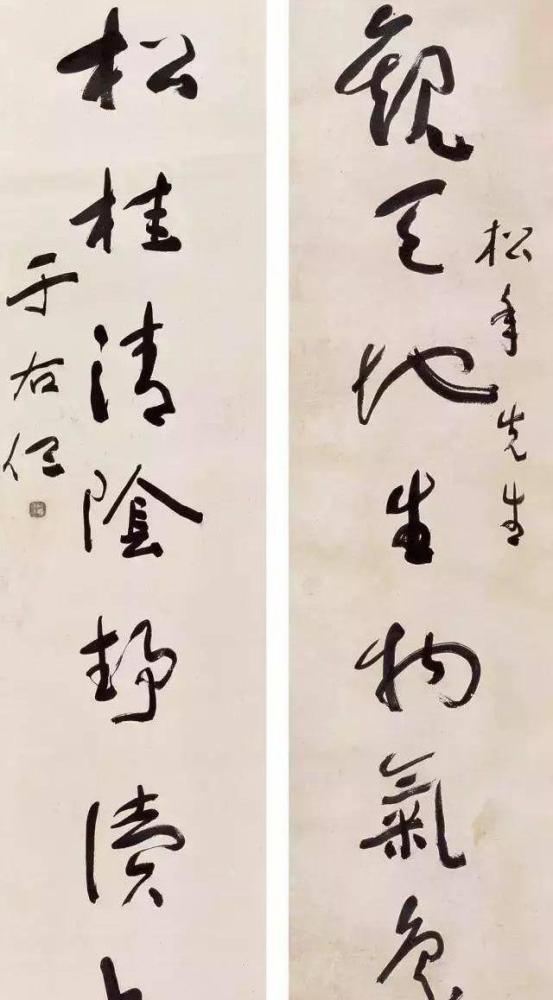 松年先生
觀天地生物氣象
松桂清陰靜讀
于右任